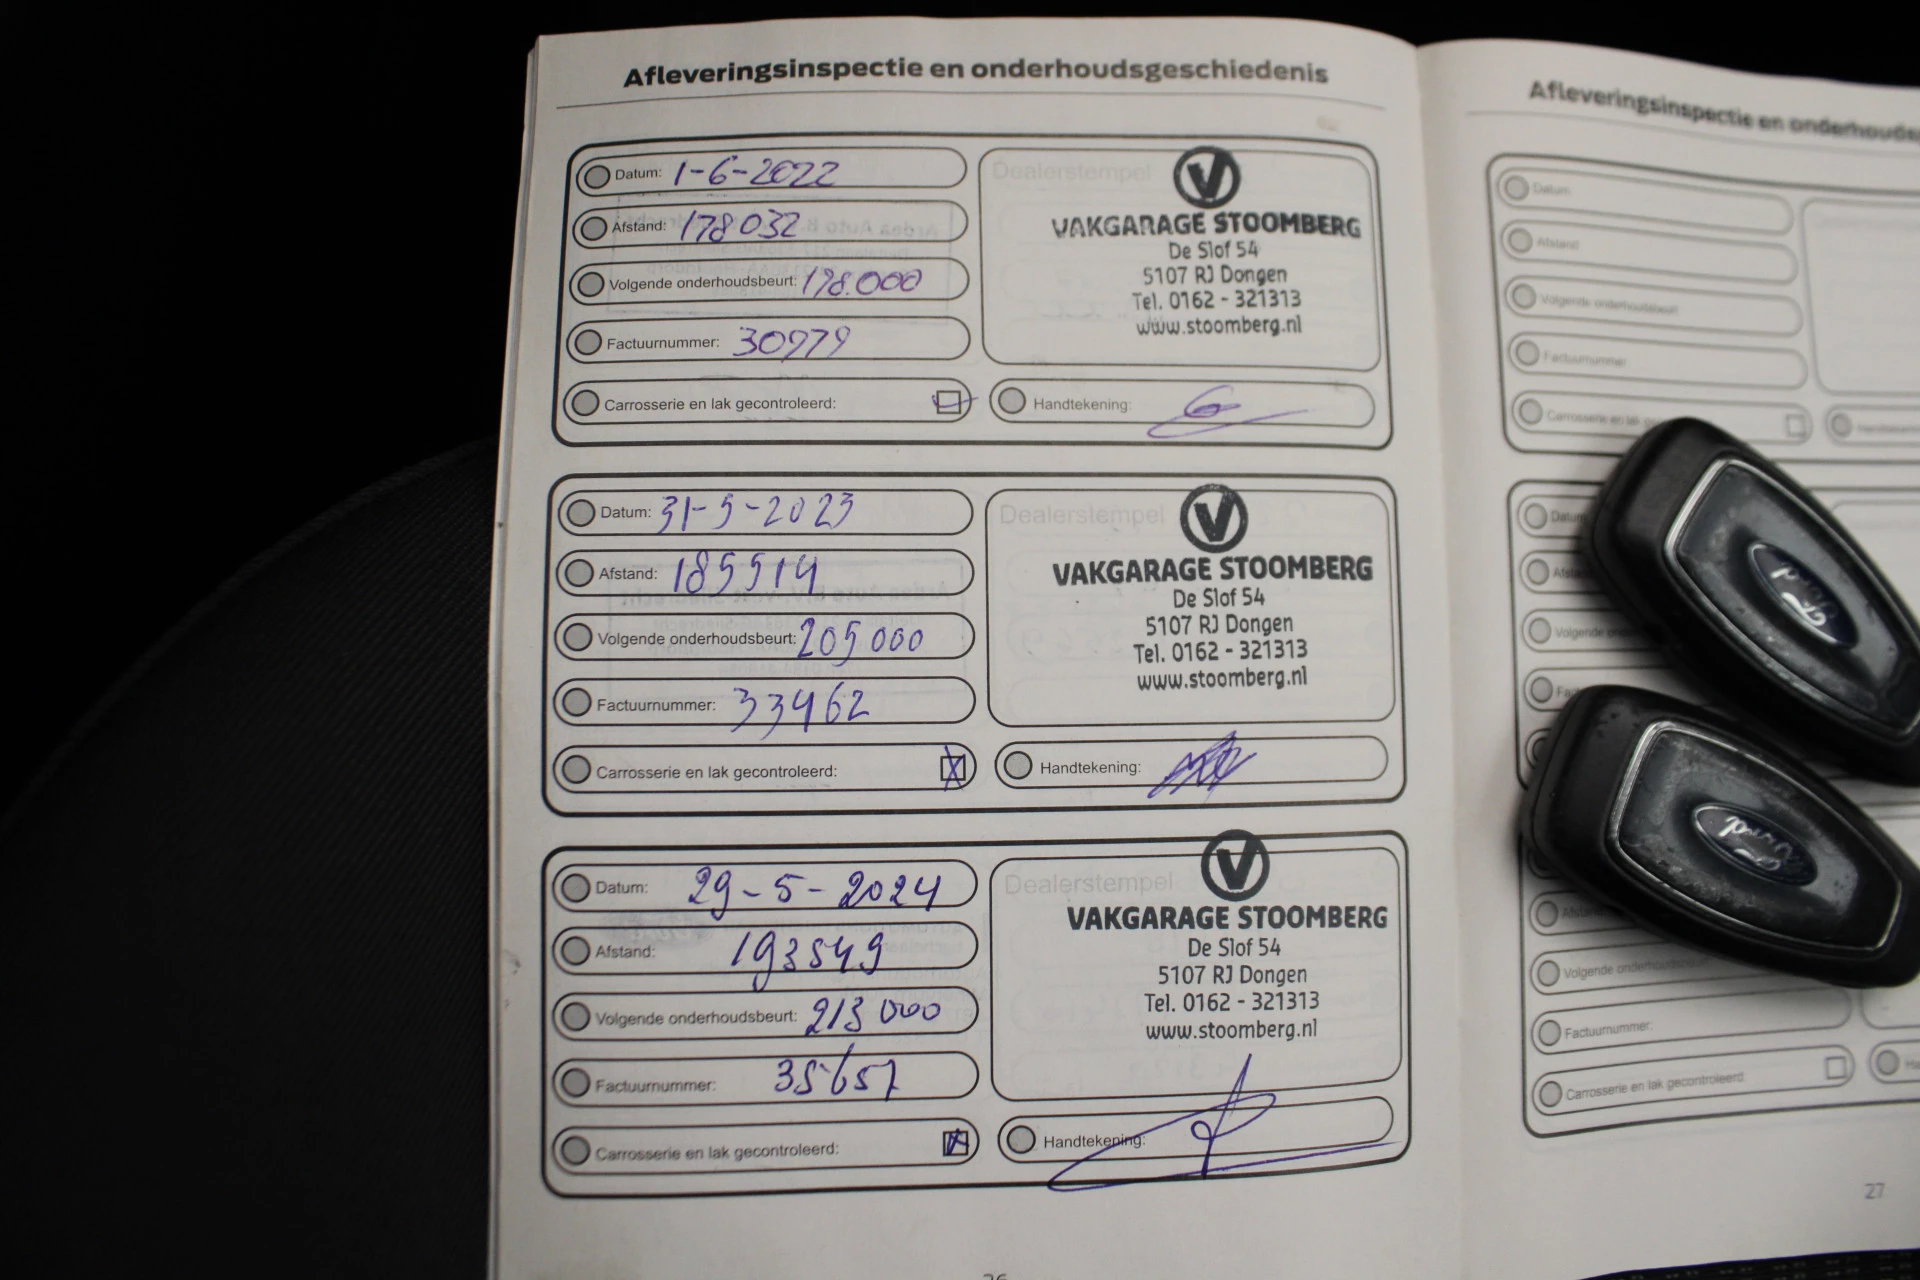 Afleveringsinspectie en onderhoudsgeschiedenis
Datum: 1-6-2022
Afstand: 178032
Volgende onderhoudsbeurt: 198.000
Factuurnummer: 30979
Carrosserie en lak gecontroleerd:
Dealerstempel
V
VAKGARAGE STOOMBERG
De Slof 54
5107 RJ Dongen
Tel. 0162 - 321313
www.stoomberg.nl
Handtekening:
Datum: 31-5-2023
Afstand: 185514
Volgende onderhoudsbeurt: 205000
Factuurnummer: 33462
Carrosserie en lak gecontroleerd: X
Dealerstempel
V
VAKGARAGE STOOMBERG
De Slof 54
5107 RJ Dongen
Tel. 0162 - 321313
www.stoomberg.nl
Handtekening:
Datum: 29-5-2024
Afstand: 193549
Volgende onderhoudsbeurt: 213000
Factuurnummer: 35657
Carrosserie en lak gecontroleerd: X
Dealerstempel
V
VAKGARAGE STOOMBERG
De Slof 54
5107 RJ Dongen
Tel. 0162 - 321313
www.stoomberg.nl
Handtekening:
Afleveringsinspectie en
Datum
Afstand
Volgende onderhoudsbeurt
Factuurnummer
Carrosserie en lak
Datum
Volgende
Volgende
Factuurnummer:
Carrosserie en lak gecontroleerd:
27
Ford
Ford